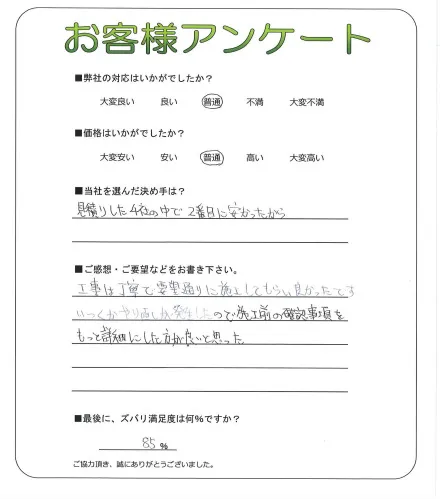 お客様アンケート
■弊社の対応はいかがでしたか？
大変良い 良い 普通 不満 大変不満
■価格はいかがでしたか？
大変安い 安い 普通 高い 大変高い
■当社を選んだ決め手は？
見積りした4社の中で2番目に安かったから
■ご感想・ご要望などをお書き下さい。
工事は丁寧で要望通りに施工してもらい良かったです
いくつかやり直しが発生したので施工前の確認事項を
もっと詳細にした方が良いと思った
■最後に、ズバリ満足度は何％ですか？
85％
ご協力頂き、誠にありがとうございました。